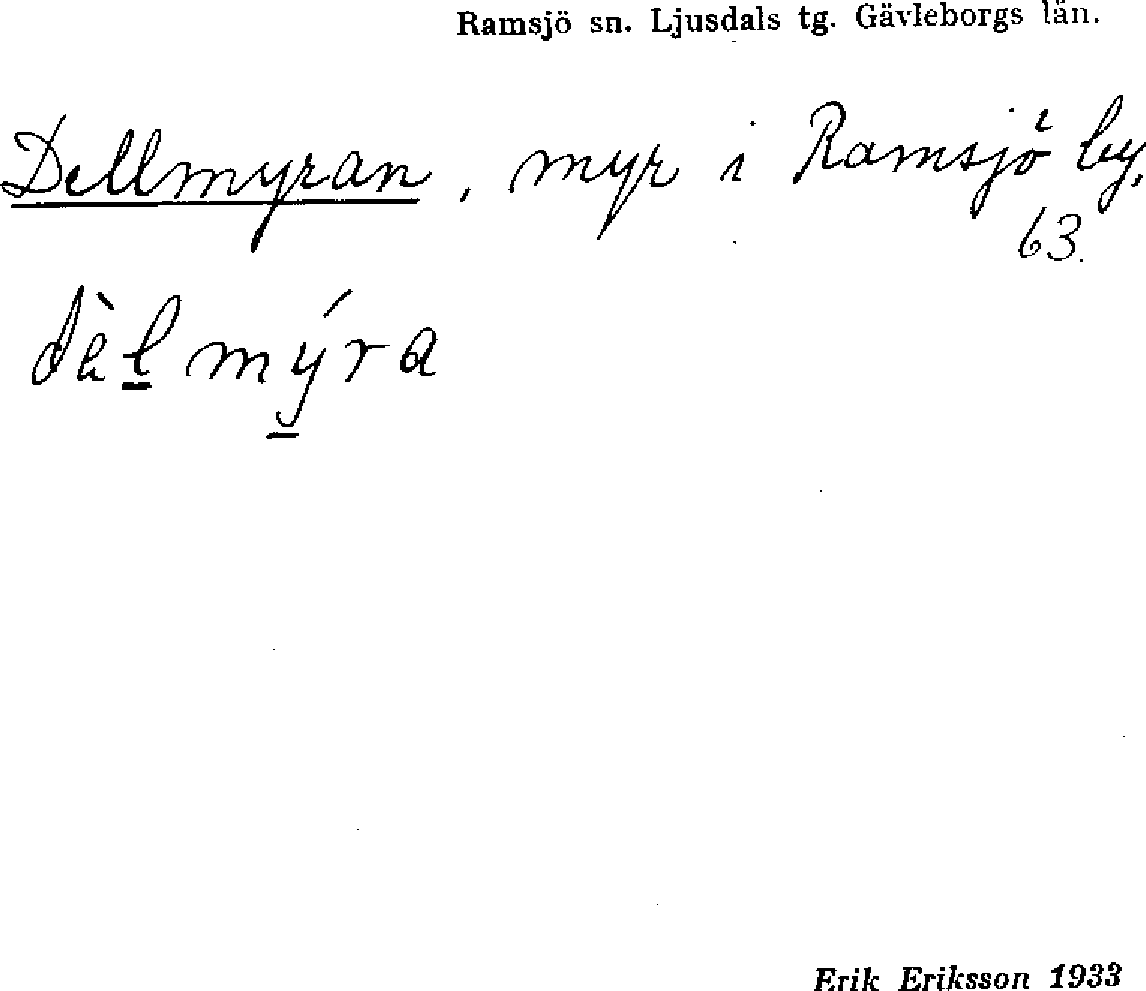 Ramsjö sn. Ljusdals tg. Gävleborgs län.
Dellmyran, myr i Ramsjö by,
63.
dèl mýra
Erik Eriksson 1933